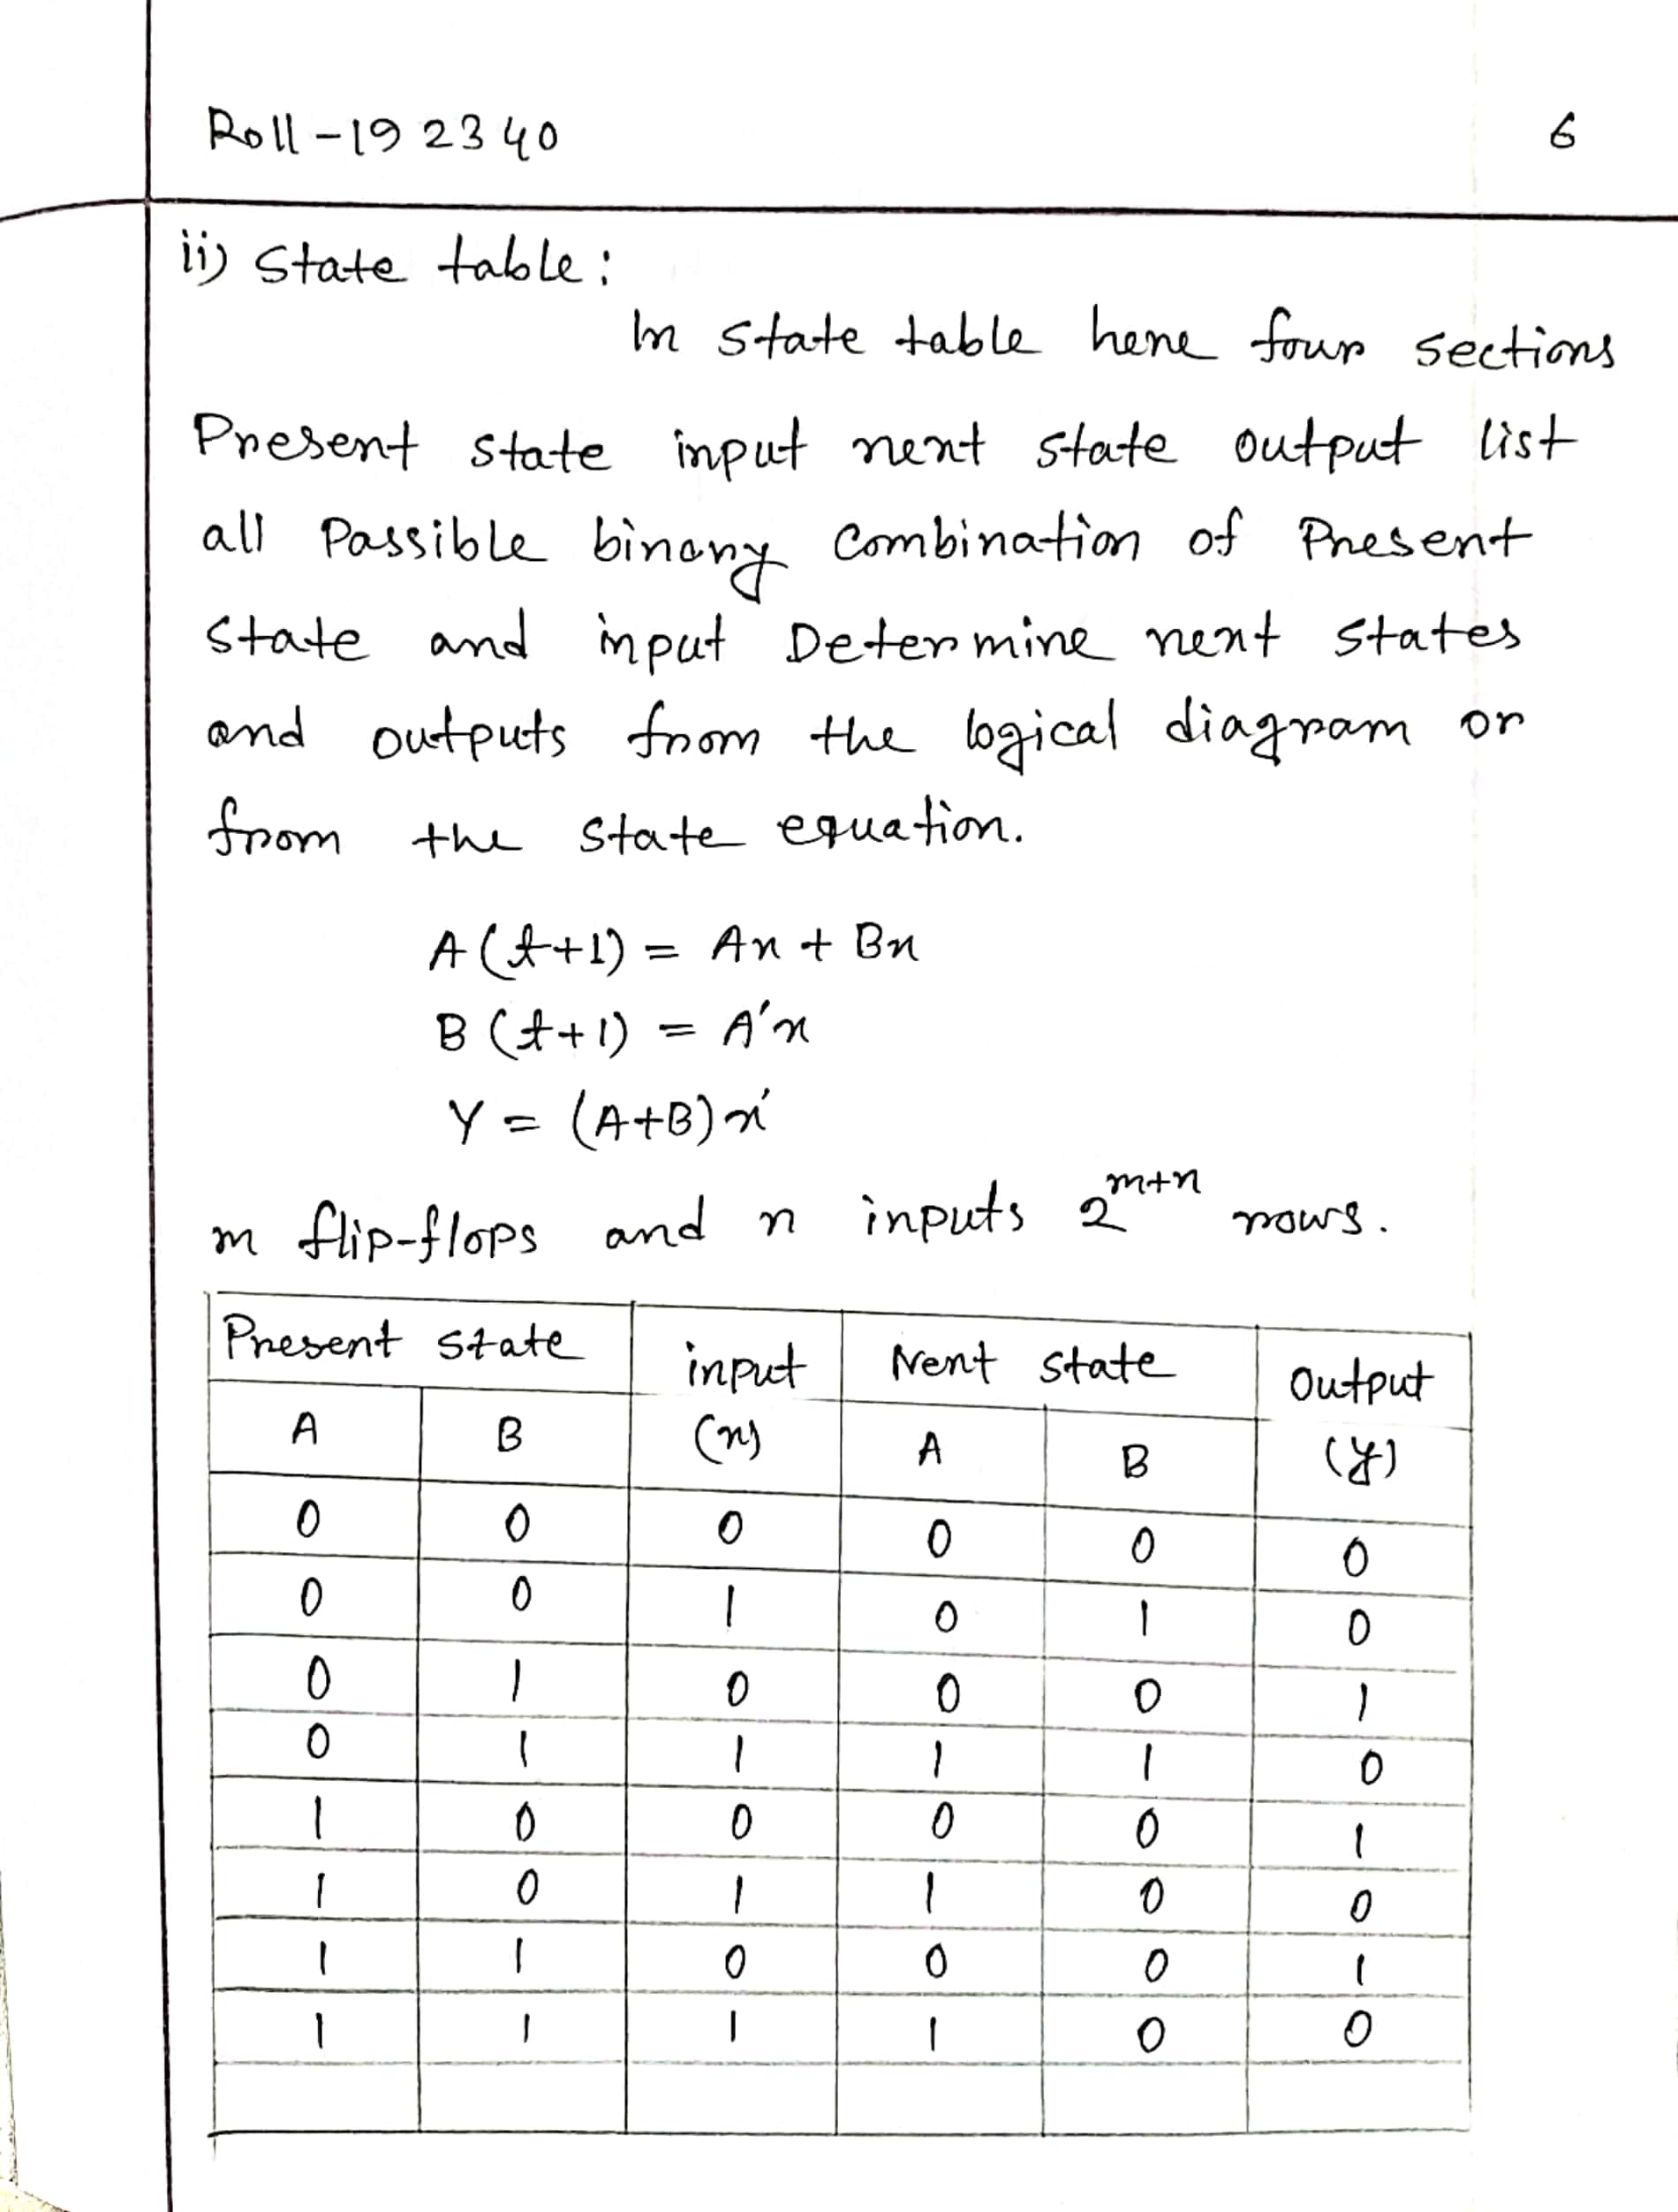 Roll-192340
6
ii) State table:
In state table here four sections
Present state input next state output list
all Passible binary combination of Present
state and input Determine next states
and outputs from the logical diagram or
from the state equation.
A(t+1) = Ax + Bx
B(t+1) = A'x
Y = (A+B)x'
m flip-flops and n inputs 2^m+n rows.
Present state input Next state Output
A B (x) A B (y)
0 0 0 0 0 0
0 0 1 0 1 0
0 1 0 0 0 1
0 1 1 1 1 0
1 0 0 0 0 1
1 0 1 1 0 0
1 1 0 0 0 1
1 1 1 1 0 0